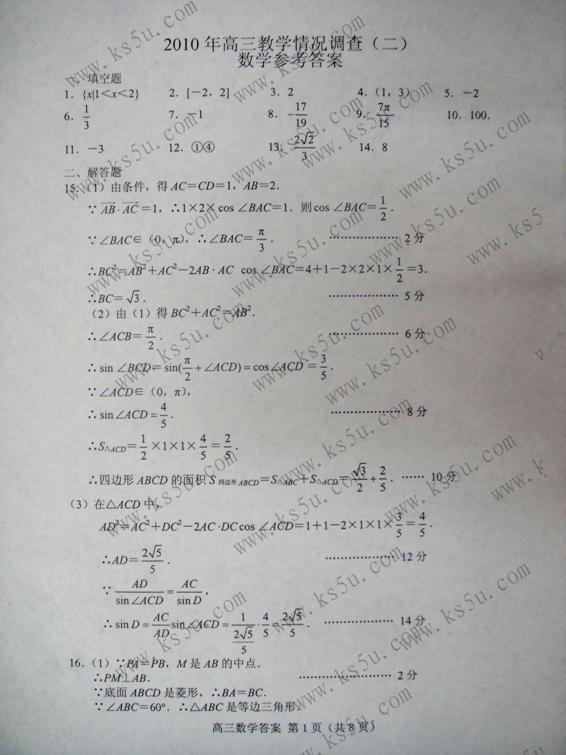 2010 年高三教学情况调查（二）
数学参考答案
一、填空题
1. {x|1＜x＜2} 2. [－2，2] 3. 2 4.（1，3） 5. －2
6. 1/3 7. －1 8. －17/19 9. 7π/15 10. 100.
11. －3 12. ①④ 13. 2√2/3 14. 8
二、解答题
15.（1）由条件，得 AC＝CD＝1，AB＝2.
∵AB·AC＝1，∴1×2×cos ∠BAC＝1. 则 cos ∠BAC＝1/2.
∵∠BAC∈（0，π），∴∠BAC＝π/3. ………………… 2 分
∴BC²＝AB²＋AC²－2AB · AC cos ∠BAC＝4＋1－2×2×1×1/2＝3.
∴BC＝√3. ………………… 5 分
（2）由（1）得 BC²＋AC²＝AB².
∴∠ACB＝π/2. ………………… 6 分
∴sin ∠BCD＝sin(π/2＋∠ACD)＝cos∠ACD＝3/5.
∵∠ACD∈（0，π），
∴sin∠ACD＝4/5. ………………… 8 分
∴S△ACD＝1/2×1×1×4/5＝2/5.
∴四边形 ABCD 的面积 S四边形ABCD＝S△ABC＋S△ACD＝√3/2＋2/5. …… 10 分
（3）在△ACD 中，
AD²＝AC²＋DC²－2AC ·DC cos ∠ACD＝1＋1－2×1×1×3/5＝4/5.
∴AD＝2√5/5. ………………… 12 分
∵AD/sin∠ACD＝AC/sin D，
∴sin D＝AC/AD sin∠ACD＝1/(2√5/5)·4/5＝2√5/5. ………………… 14 分
16.（1）∵PA＝PB，M 是 AB 的中点.
∴PM⊥AB. ………………… 2 分
∵底面 ABCD 是菱形，∴BA＝BC.
∵∠ABC＝60°. ∴△ABC 是等边三角形.
高三数学答案 第 1 页（共 8 页）
www.ks5u.com